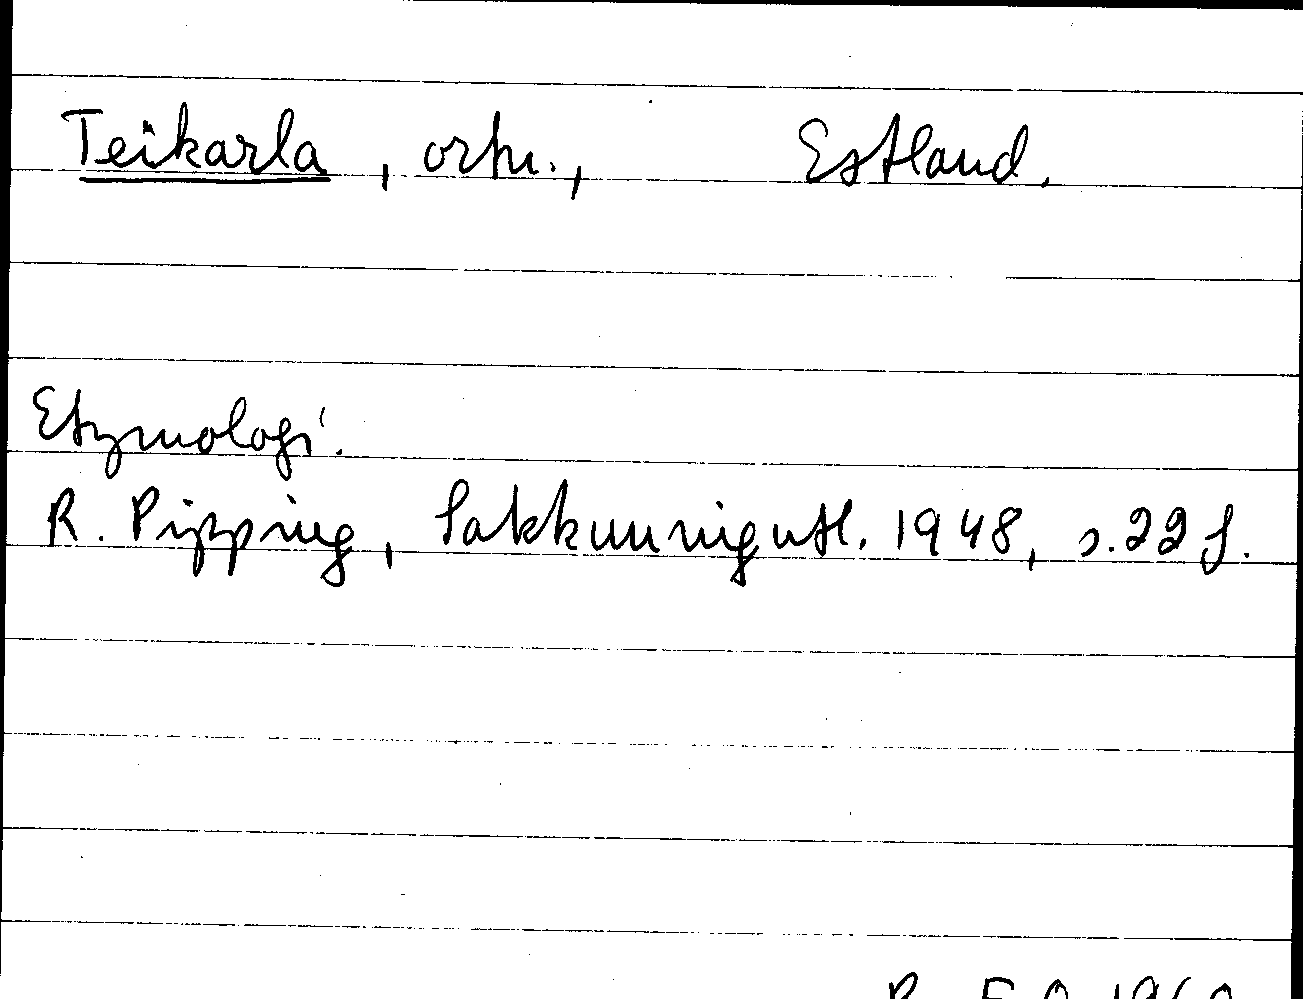 Teikarla, ortn., Estland.
Etymologi.
R. Pipping, Sakkunnigutl. 1948, s. 22 f.